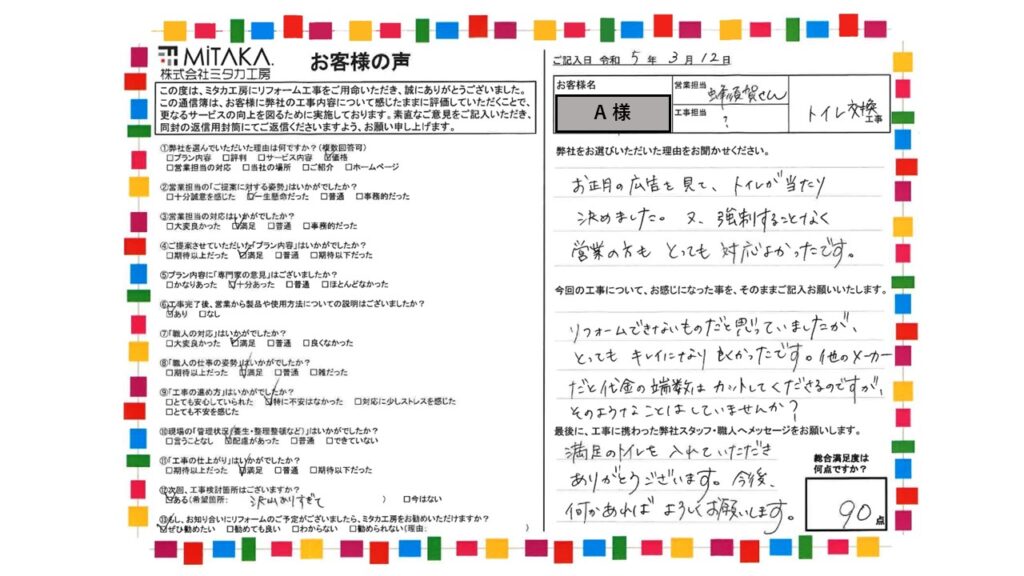 MiTAKA.
株式会社ミタカ工房
お客様の声
この度は、ミタカ工房にリフォーム工事をご用命いただき、誠にありがとうございました。
この通信簿は、お客様に弊社の工事内容について感じたままに評価していただくことで、
更なるサービスの向上を図るために実施しております。素直なご意見をご記入いただき、
同封の返信用封筒にてご返信くださいますよう、お願い申し上げます。
①弊社を選んでいただいた理由は何ですか?(複数回答可)
□プラン内容 □評判 □サービス内容 ☑価格
□営業担当の対応 □当社の場所 □ご紹介 □ホームページ
②営業担当の「ご提案に対する姿勢」はいかがでしたか?
□十分誠意を感じた ☑一生懸命だった □普通 □事務的だった
③営業担当の対応はいかがでしたか?
□大変良かった ☑満足 □普通 □事務的だった
④ご提案させていただいた「プラン内容」はいかがでしたか?
□期待以上だった ☑満足 □普通 □期待以下だった
⑤プラン内容に「専門家の意見」はございましたか?
□かなりあった ☑十分あった □普通 □ほとんどなかった
⑥工事完了後、営業から製品や使用方法についての説明はございましたか?
☑あり □なし
⑦「職人の対応」はいかがでしたか?
□大変良かった ☑満足 □普通 □良くなかった
⑧「職人の仕事の姿勢」はいかがでしたか?
□期待以上だった ☑満足 □普通 □雑だった
⑨「工事の進め方」はいかがでしたか?
□とても安心していられた ☑特に不安はなかった □対応に少しストレスを感じた
□とても不安を感じた
⑩現場の「管理状況(養生・整理整頓など)」はいかがでしたか?
□言うことなし ☑配慮があった □普通 □できていない
⑪「工事の仕上がり」はいかがでしたか?
□期待以上だった ☑満足 □普通 □期待以下だった
⑫次回、工事検討箇所はございますか?
☑ある(希望箇所: 沢山ありすぎて ) □今はない
⑬もし、お知り合いにリフォームのご予定がございましたら、ミタカ工房をお勧めいただけますか?
☑ぜひ勧めたい □勧めても良い □わからない □勧められない(理由: )
ご記入日 令和 5 年 3 月 12 日
お客様名
A 様
営業担当 蜂須賀さん
工事担当 ?
トイレ交換 工事
弊社をお選びいただいた理由をお聞かせください。
お正月の広告を見て、トイレが当たり
決めました。又、強制することなく
営業の方も とっても 対応よかったです。
今回の工事について、お感じになった事を、そのままご記入お願いいたします。
リフォームできないものだと思っていましたが、
とっても キレイになり 良くかったです。他のメーカー
だと代金の端数は カットしてくださるのですが、
そのようなことはしていませんか?
最後に、工事に携わった弊社スタッフ・職人へメッセージをお願いします。
満足のトイレを 入れていただき
ありがとうございます。今後、
何かあれば よろしくお願いします。
総合満足度は
何点ですか?
90 点